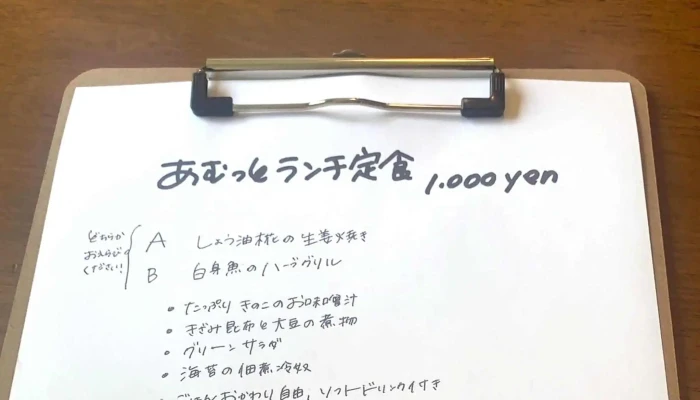 あむっと ランチ定食 1.000 yen
どちらか
おえらび
ください!
A しょう油糀の生姜焼き
B 白身魚のハーブグリル
• たっぷり きのこのお味噌汁
• きざみ昆布と大豆の煮物
• グリーンサラダ
• 海苔の佃煮冷奴
• ごはんおかわり自由, ソフトドリンク付き